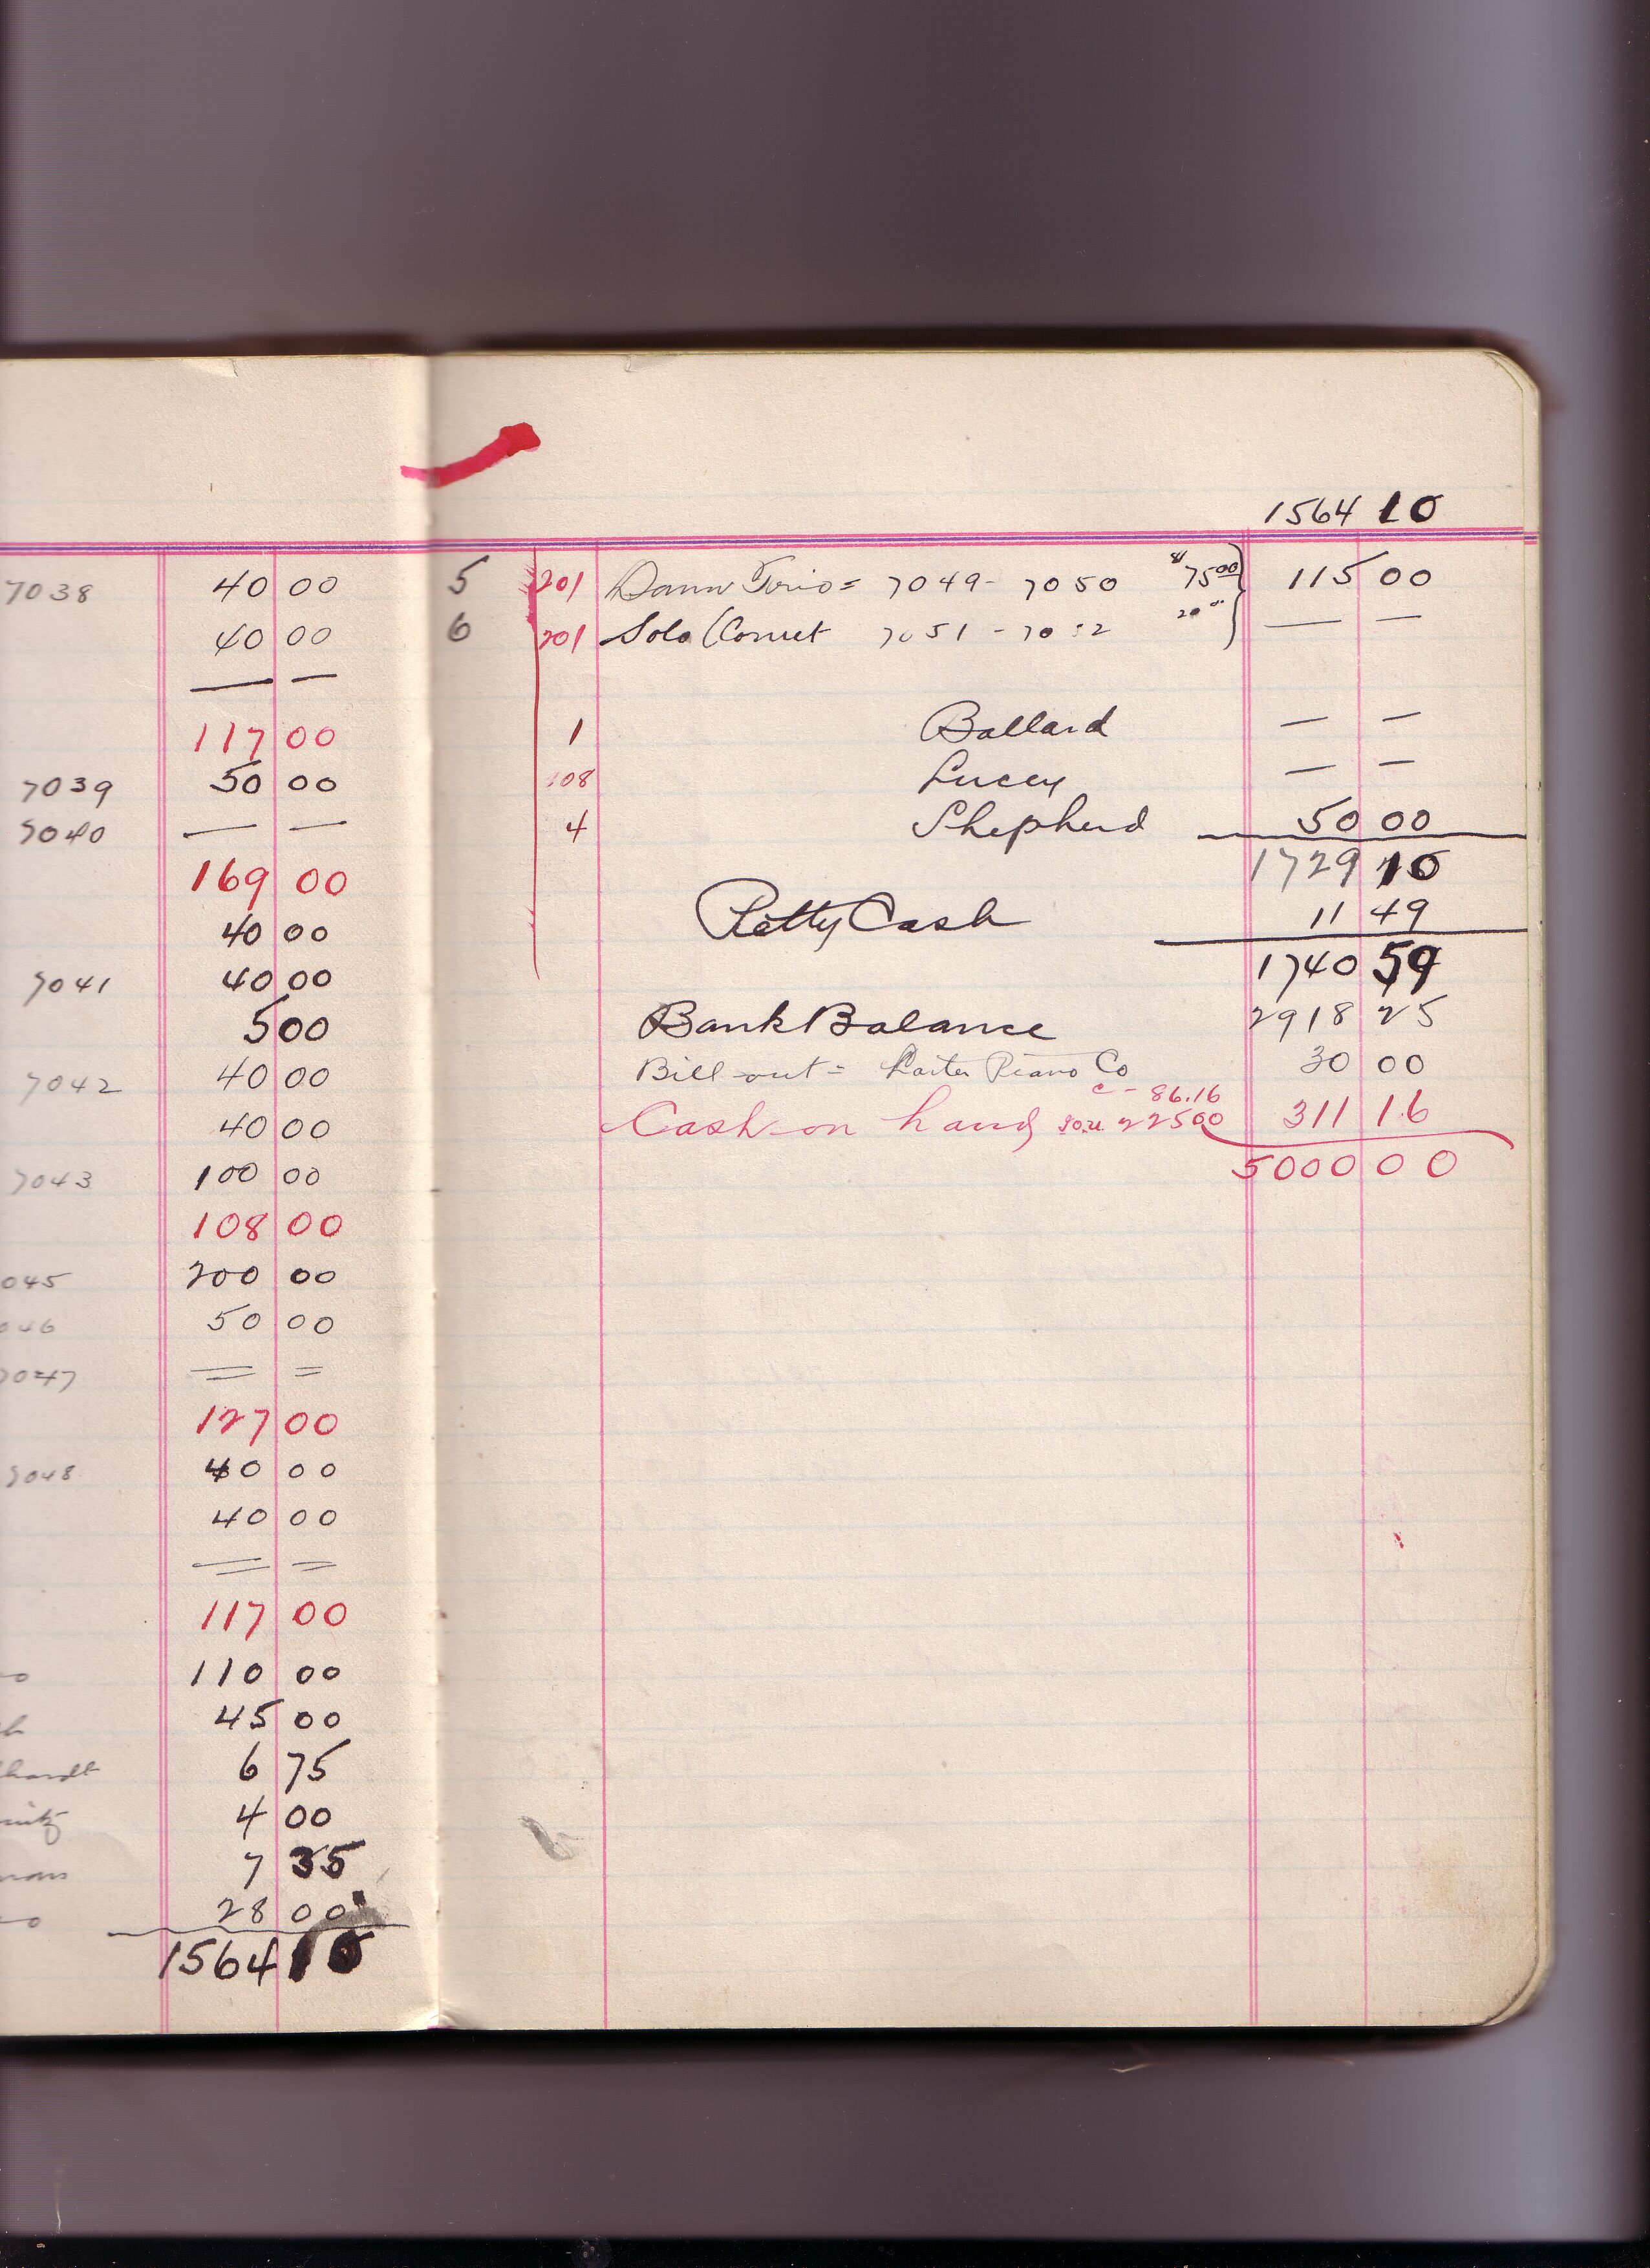 7038 40 00
40 00
— —
117 00
7039 50 00
7040 — —
169 00
40 00
7041 40 00
5 00
7042 40 00
40 00
7043 100 00
108 00
045 200 00
046 50 00
7047 = =
127 00
7048 40 00
40 00
= =
117 00
110 00
45 00
hardt 6 75
4 00
7 35
28 00
1564 10
1564 10
5 201 Dann Trio = 7049 - 7050 $75 00 115 00
6 201 Solo (Cornet 7051 - 7052 20 00 — —
1 Ballard — —
108 Lucey — —
4 Shepherd 50 00
1729 10
Petty Cash 11 49
1740 59
Bank Balance 2918 25
Bill-out = Piano Co 30 00
c - 86.16
Cash on hand 22500 311 16
5000 00